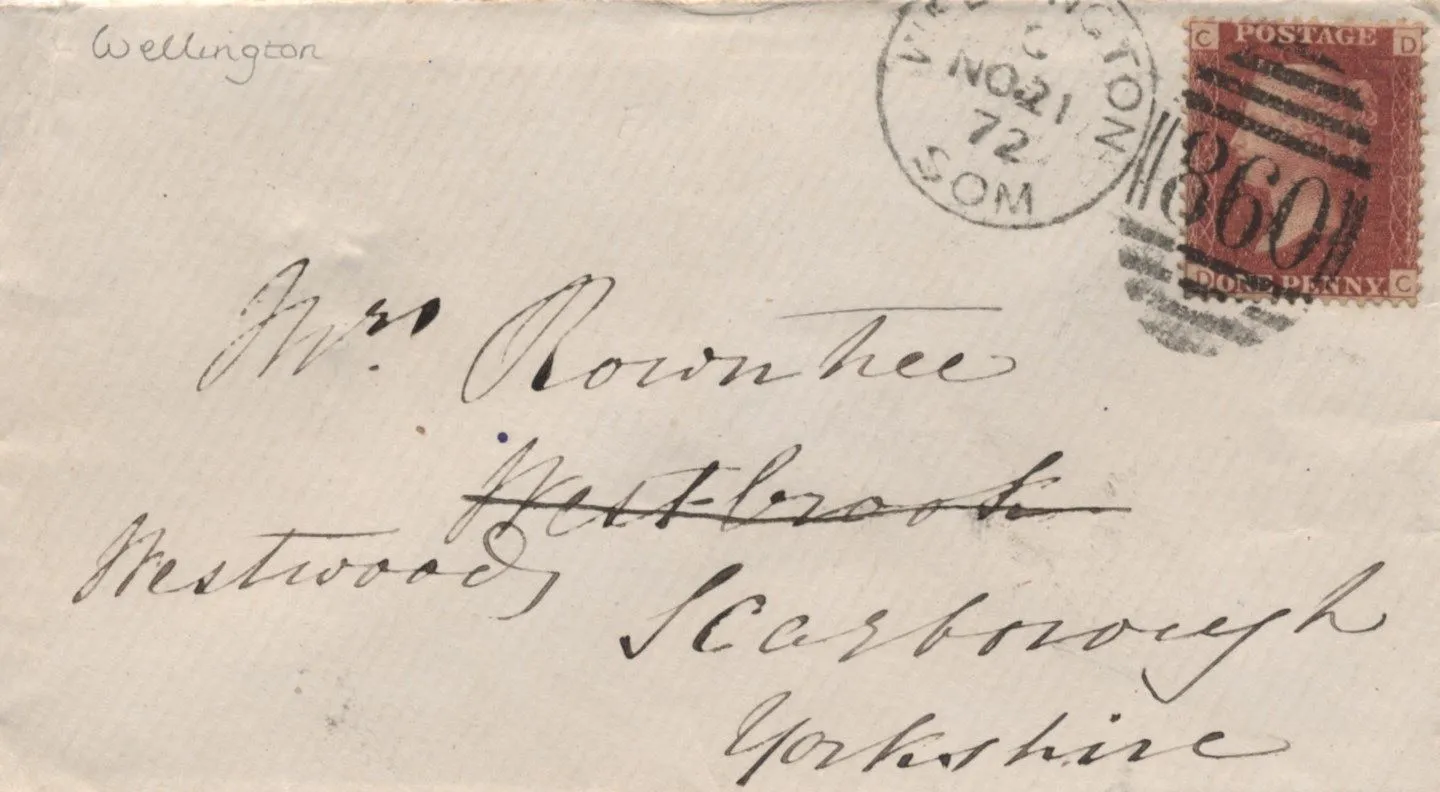 Wellington
WELLINGTON
C
NO 21
72
SOM
C POSTAGE D
860
D ONE PENNY. C
Mrs. Rowntree
Westbrook
Westwood,
Scarborough
Yorkshire